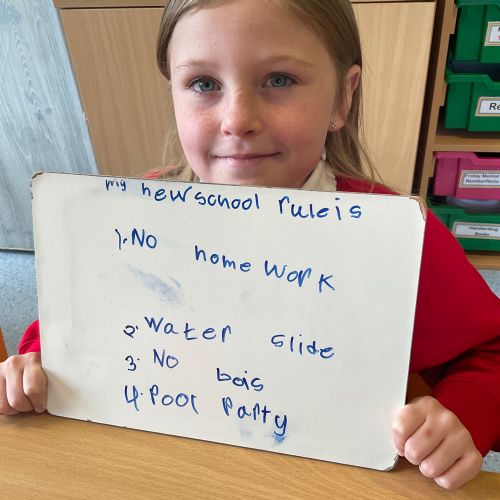 my new school ruleis
1. No home work
2. water slide
3. No bois
4. Pool Party
Re
Friday Mental
Numberfacts
Handwriting
Books